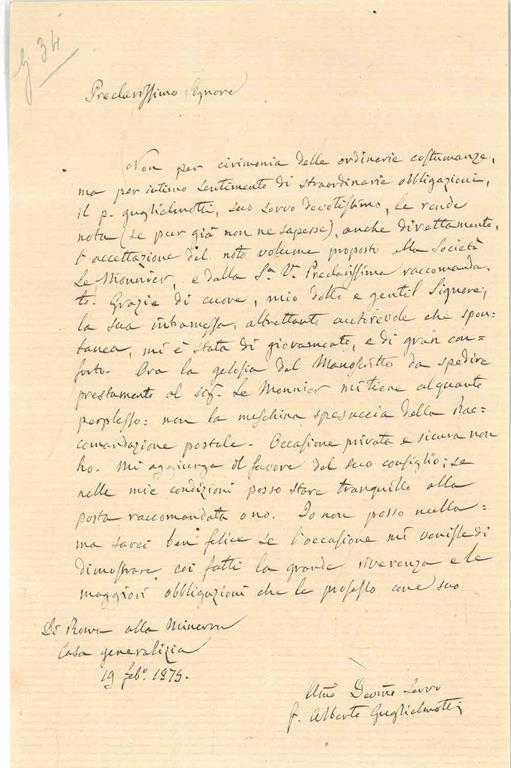 G 34
Preclarissimo Signore
Non per cirimonia delle ordinarie costumanze,
ma per intimo sentimento di straordinarie obbligazioni,
il p. Guglielmotti, suo servo devotissimo, le rende
nota (se pur già non ne sapesse), anche direttamente,
l'accettazione del noto volume proposto alla Società
Le Monnier, e dalla Sa. Va. Preclarissima raccomanda-
to. Grazie di cuore, mio dotto e gentil Signore;
la sua intramessa, altrettanto autorevole che spon-
tanea, mi è stata di giovamento, e di gran con-
forto. Ora la gelosia del Manoscritto da spedire
prestamente al sig. Le Monnier mi tiene alquanto
perplesso: non la meschina spesuccia della Rac-
comandazione postale. Occasione privata e sicura non
ho. Mi aggiunga il favore del suo consiglio; se
nelle mie condizioni posso stare tranquillo alla
posta raccomandata o no. Io non posso nulla:
ma sarei ben felice se l'occasione mi venisse di
dimostrare coi fatti la grande riverenza e le
maggiori obbligazioni che le professo come suo
Di Roma alla Minerva
Casa generalizia
19 febo. 1875.
Umo Devmo Servo
f. Alberto Guglielmotti